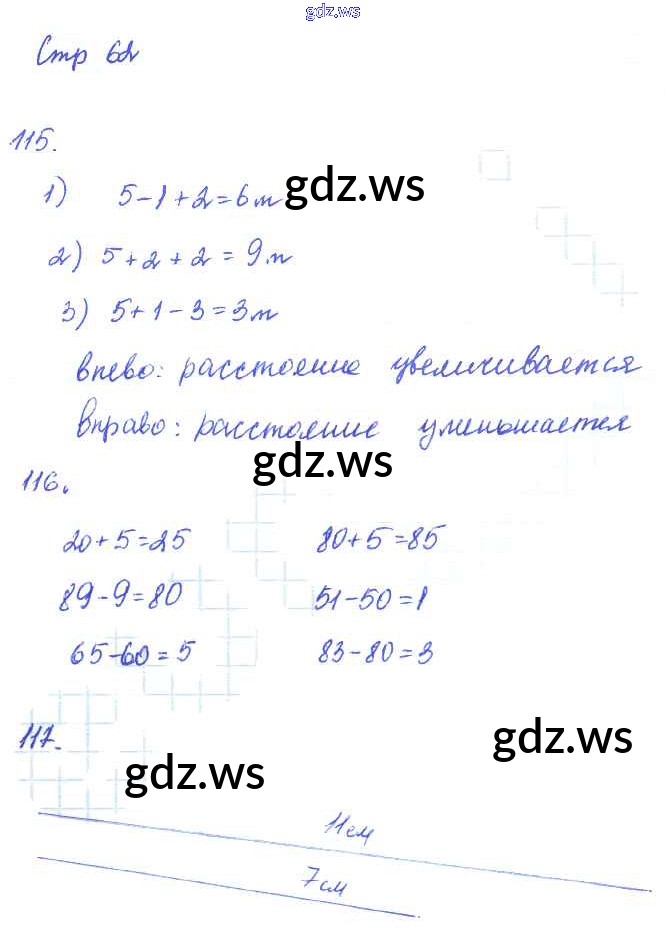 gdz.ws
Стр 62
115.
1) 5-1+2=6м gdz.ws
2) 5+2+2=9м
3) 5+1-3=3м
влево: расстояние увеличивается
вправо: расстояние уменьшается
gdz.ws
116.
20+5=25 80+5=85
89-9=80 51-50=1
65-60=5 83-80=3
117.
gdz.ws
gdz.ws
11см
7см